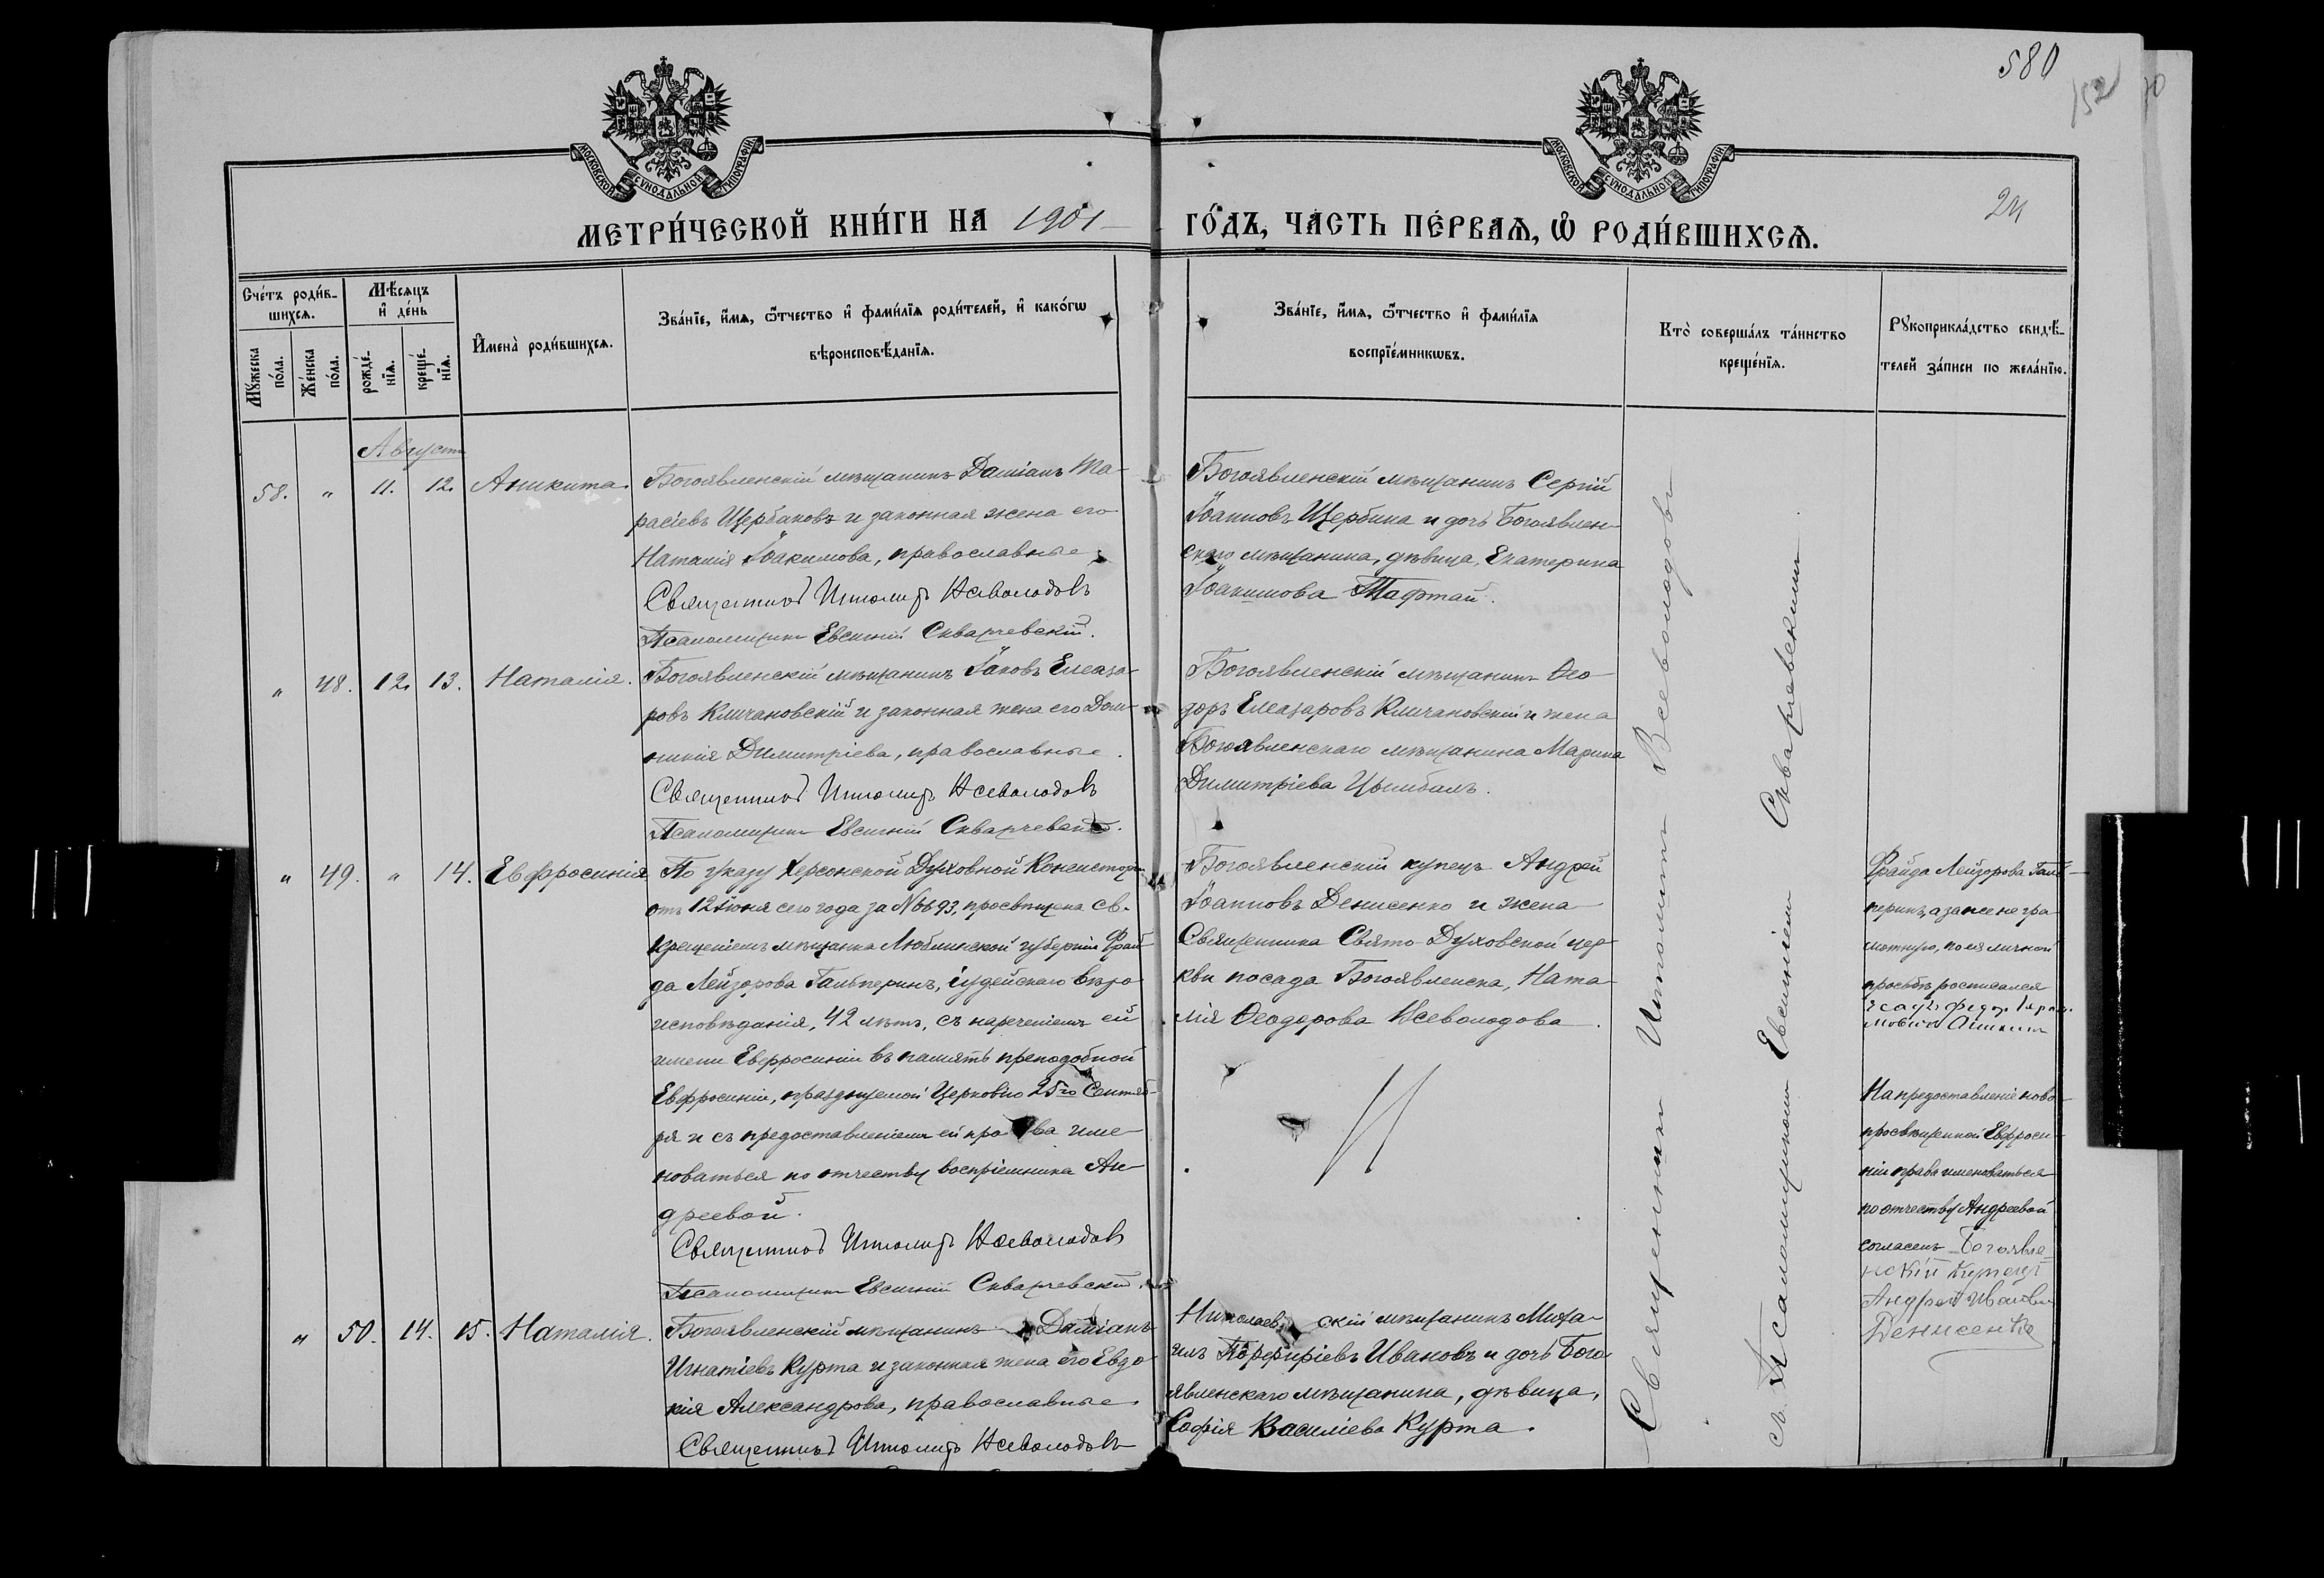 580
152
70
24
МОСКОВСКОЙ СѴНОДАЛЬНОЙ ТИПОГРАФІИ
МОСКОВСКОЙ СѴНОДАЛЬНОЙ ТИПОГРАФІИ
МЕТРИ́ЧЕСКОЙ КНИ́ГИ НА 1901 ГО́ДЪ, ЧА́СТЬ ПЕ́РВАѦ, Ѡ҆ РОДИ́ВШИХСѦ.
Сче́тъ роди́в-
шихсѧ.
Мꙋ́жеска по́ла.
Же́нска по́ла.
Мѣ́сѧцъ
и҆ де́нь
рожде́-нїѧ.
креще́-нїѧ.
И҆мена̀ роди́вшихсѧ.
Зва́нїе, и҆́мѧ, ѻ҆́тчество и҆ фами́лїѧ роди́телей, и҆ како́гѡ
вѣроисповѣ́данїѧ.
Зва́нїе, и҆́мѧ, ѻ҆́тчество и҆ фами́лїѧ
воспрїе́мникѡвъ.
Кто̀ соверша́лъ та́инство
креще́нїѧ.
Рꙋкоприкла́дство свидѣ́-
телей за́писи по жела́нїю.
Августъ
58. " 11. 12. Аникита.
Богоявленскій мѣщанинъ Даміанъ Та-
расіевъ Щербаковъ и законная жена его
Наталія Іоакимова, православные.
Священникъ Ипполитъ Всеволодовъ
Псаломщикъ Евсигній Скварчевскій.
Богоявленскій мѣщанинъ Сергій
Іоанновъ Щербина и дочь Богоявлен-
скаго мѣщанина, дѣвица, Екатерина
Іоакимова Тафтай.
" 48. 12. 13. Наталія.
Богоявленскій мѣщанинъ Іаковъ Елеаза-
ровъ Кличановскій и законная жена его Дом-
никія Димитріева, православные.
Священникъ Ипполитъ Всеволодовъ
Псаломщикъ Евсигній Скварчевскій.
Богоявленскій мѣщанинъ Ѳео-
доръ Елеазаровъ Кличановскій и жена
Богоявленскаго мѣщанина Марина
Димитріева Цымбалъ.
" 49. " 14. Евфросинія
По указу Херсонской Духовной Консисторіи
отъ 12 Іюня сего года за № 6693, просвѣщена св.
крещеніемъ мѣщанка Люблинской губерніи Фрай-
да Лейзорова Гальперинъ, іудейскаго вѣро-
исповѣданія, 42 лѣтъ, съ нареченіемъ ей
имени Евфросиніи въ память преподобной
Евфросиніи, празднуемой Церковію 25го Сентяб-
ря и съ предоставленіемъ ей права име-
новаться по отчеству воспріемника Ан-
дреевой.
Священникъ Ипполитъ Всеволодовъ
Псаломщикъ Евсигній Скварчевскій.
Богоявленскій купецъ Андрей
Іоанновъ Денисенко и жена
Священника Свято-Духовской цер-
кви посада Богоявленска, Ната-
лія Ѳеодорова Всеволодова.
Фрайда Лейзорова Галь-
перинъ, а за нее негра-
мотную, по ея личной
просьбѣ росписался
На предоставленіе ново-
просвѣщенной Евфроси-
ніи права именоваться
по отчеству Андреевой
согласенъ Богоявле-
нскій купецъ
Андрей Иванови
Денисенко
" 50. 14. 15. Наталія.
Богоявленскій мѣщанинъ Даміанъ
Игнатіевъ Курта и законная жена его Евдо-
кія Александрова, православные.
Священникъ Ипполитъ Всеволодовъ
Николаевскій мѣщанинъ Миха-
илъ Порфиріевъ Ивановъ и дочь Бого-
явленскаго мѣщанина, дѣвица,
Софія Василіева Курта.
Священникъ Ипполитъ Всеволодовъ
съ Псаломщикомъ Евсигніемъ Скварчевскимъ.